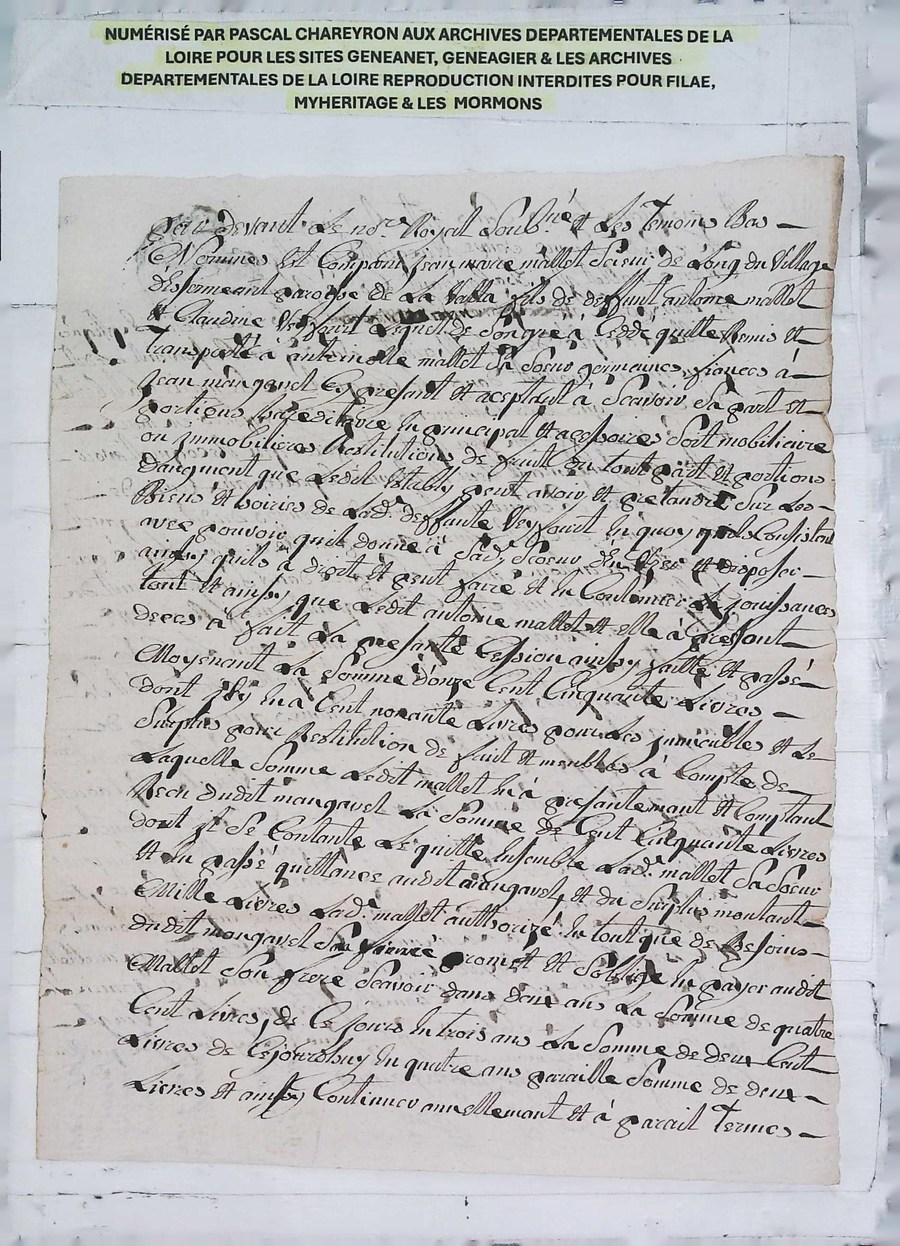 NUMÉRISÉ PAR PASCAL CHAREYRON AUX ARCHIVES DEPARTEMENTALES DE LA
LOIRE POUR LES SITES GENEANET, GENEAGIER & LES ARCHIVES
DEPARTEMENTALES DE LA LOIRE REPRODUCTION INTERDITES POUR FILAE,
MYHERITAGE & LES MORMONS
Par devant Le no.re Royal Soub.né et Les Temoins Bas
Nommes Est Comparu jean marie mallet Scieur de Long du Village
paroisse de La Valla fils de deffunt antoine mallet
et Claudine Veyfourt Lequel de Son gré à Ceddé quitte Remis et
Transporté à antoinette mallet Sa Soeur germaine, fiancée à
jean mangavel Icy presant et aceptant à Scavoir Sa part et
portions hereditaire En principal et acessoires Soit mobiliaire
ou immobiliaires Restitutions de fruits ou tout part et portions
daugment que Ledit Estably peut avoir et pretandre Sur Les
Biens et hoiries de Lad.e deffunte Veyfourt En quoy quils Consistent
avec pouvoir quil donne à Sad.e Soeur den User et disposer
ainsy quils à droit et peut faire et En Continuer La jouissances
tout et ainsy que Ledit antoine mallet et elle à presant
à fait La presante Cession ainsy faitte et passé
Moyenant La Somme donze Cent Cinquante Livres
dont il y en a Cent nonante Livres pour Les immeubles et Le
Surplus pour Restitution de fruit et meubles à Compte de
Laquelle Somme Ledit mallet En à presantemant et Comptant
Recu dudit mangavel La Somme de Cent Cinquante Livres
dont il Se Contante Le quitte Ensemble Lad.e mallet Sa Soeur
et En passé quittance audit mangavel, et du Surplus montant
Mille Livres Lad.e mallet authorizé En tout que de Besoins
dudit mangavel Son fiancé promet et Soblige En payer audit
Mallet Son frere Scavoir dans deux ans La Somme de quatre
Cent Livres, de Ce jours En trois ans La Somme de deux Cent
Livres de Cejourdhuy En quatre ans paraille Somme de deux
Livres et ainsy Continuer annuellemant et à parail Termes